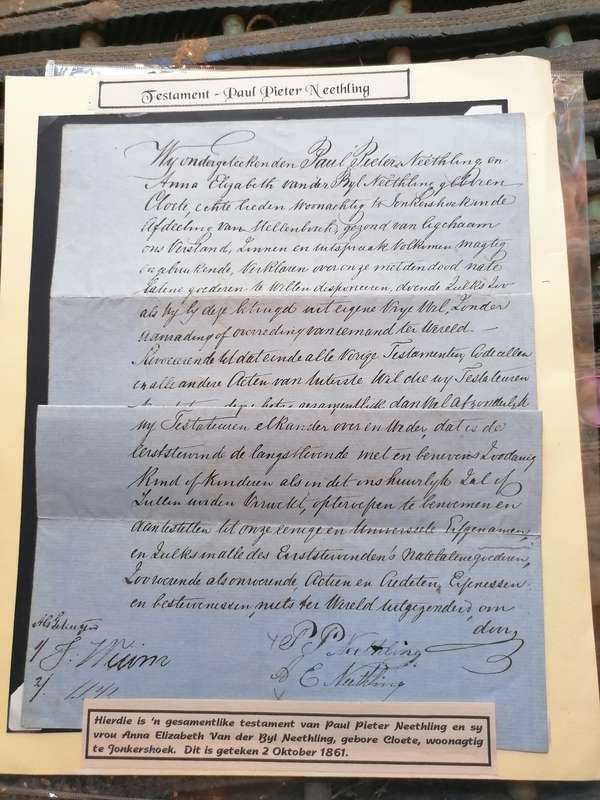 Testament - Paul Pieter Neethling
Wy ondergeteekenden Paul Pieter Neethling en
Anna Elizabeth van der Byl Neethling geboren
Cloete, echte lieden woonachtig te Jonkershoek in de
Afdeeling van Stellenbosch, gezond van ligchaam
ons Verstand, Zinnen en uitspraak Volkomen magtig
en gebruikende, Verklaren over onze met den dood nate
latene goederen te Willen disponeren, doende Zulks Zoo
als Wy by deze betuigd uit eigene Vrye Wil, Zonder
aanrading of overreding van iemand ter Wereld. —
Revoceerende tot dat einde alle Vorige Testamenten, Codicellen
en alle andere Acten van Uiterste Wil die wy Testateuren
gezamentlijk dan Wel Afzonderlyk
wy Testateuren elkander over en Weder, dat is de
eerststervende de langstlevende met en benevens Zoodanig
Kind of Kinderen als in dit ons huwelyk Zal of
Zullen worden Verwekt, opteroepen te benoemen en
aantestellen tot onze eenige en Universeele Erfgenamen,
en Zulks in alle des Eerststervenden's Natelatene goederen,
Zoo roerende als onroerende, Actien en Crediten, Erfenissen
en besterfenissen, niets ter Wereld uitgezonderd, om
door
Als Getuigen
1/
2/.
P P Neethling
E Neethling
Hierdie is 'n gesamentlike testament van Paul Pieter Neethling en sy
vrou Anna Elizabeth Van der Byl Neethling, gebore Cloete, woonagtig
te Jonkershoek. Dit is geteken 2 Oktober 1861.